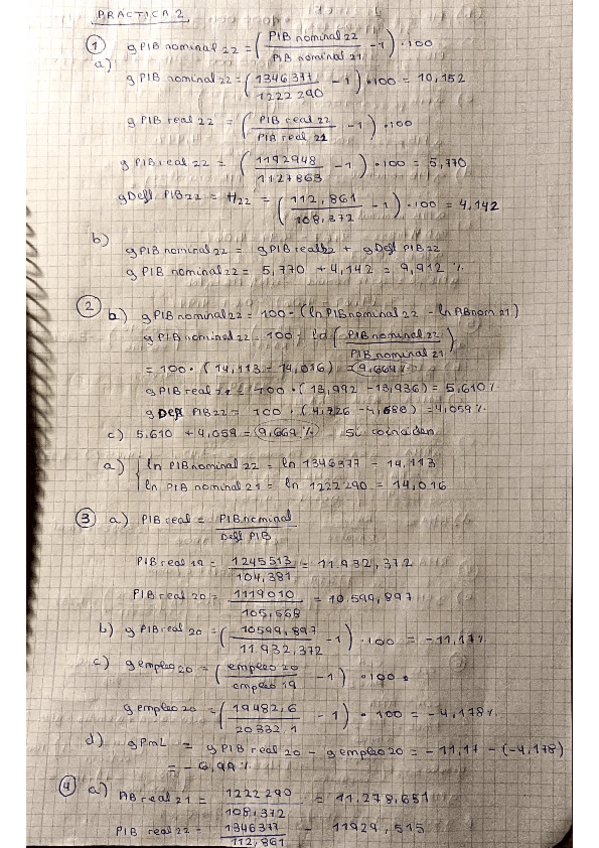 PRÁCTICA 2
① g PIB nominal 22 = ( PIB nominal 22 / PIB nominal 21 - 1 ) · 100
a)
g PIB nominal 22 = ( 1346377 / 1222290 - 1 ) · 100 = 10,152
g PIB real 22 = ( PIB real 22 / PIB real 21 - 1 ) · 100
g PIB real 22 = ( 1192948 / 1127863 - 1 ) · 100 = 5,770
g Defl PIB 22 = π22 = ( 112,861 / 108,372 - 1 ) · 100 = 4,142
b)
g PIB nominal 22 = g PIB real 22 + g Defl PIB 22
g PIB nominal 22 = 5,770 + 4,142 = 9,912 %
② b) g PIB nominal 22 = 100 · (ln PIB nominal 22 - ln PIB nom 21)
g PIB nominal 22 = 100 · ln ( PIB nominal 22 / PIB nominal 21 )
= 100 · ( 14,113 - 14,016 ) = 9,669 %
g PIB real 22 = 100 · ( 13,992 - 13,936 ) = 5,610 %
g Defl PIB 22 = 100 · ( 4,726 - 4,688 ) = 4,059 %
c) 5,610 + 4,059 = 9,669 % Si coinciden
a) ln PIB nominal 22 = ln 1346377 = 14,113
ln PIB nominal 21 = ln 1222290 = 14,016
③ a) PIB real = PIB nominal / Defl PIB
PIB real 19 = 1245513 / 104,381 = 11.932,372
PIB real 20 = 1119010 / 105,568 = 10.599,897
b) g PIB real 20 = ( 10599,897 / 11.932,372 - 1 ) · 100 = -11,17 %
c) g empleo 20 = ( empleo 20 / empleo 19 - 1 ) · 100
g empleo 20 = ( 19482,6 / 20332,1 - 1 ) · 100 = -4,178 %
d) g PmL = g PIB real 20 - g empleo 20 = -11,17 - (-4,178)
= -6,99 %
④ a) PIB real 21 = 1222290 / 108,372 = 11.278,651
PIB real 22 = 1346377 / 112,861 = 11929,515